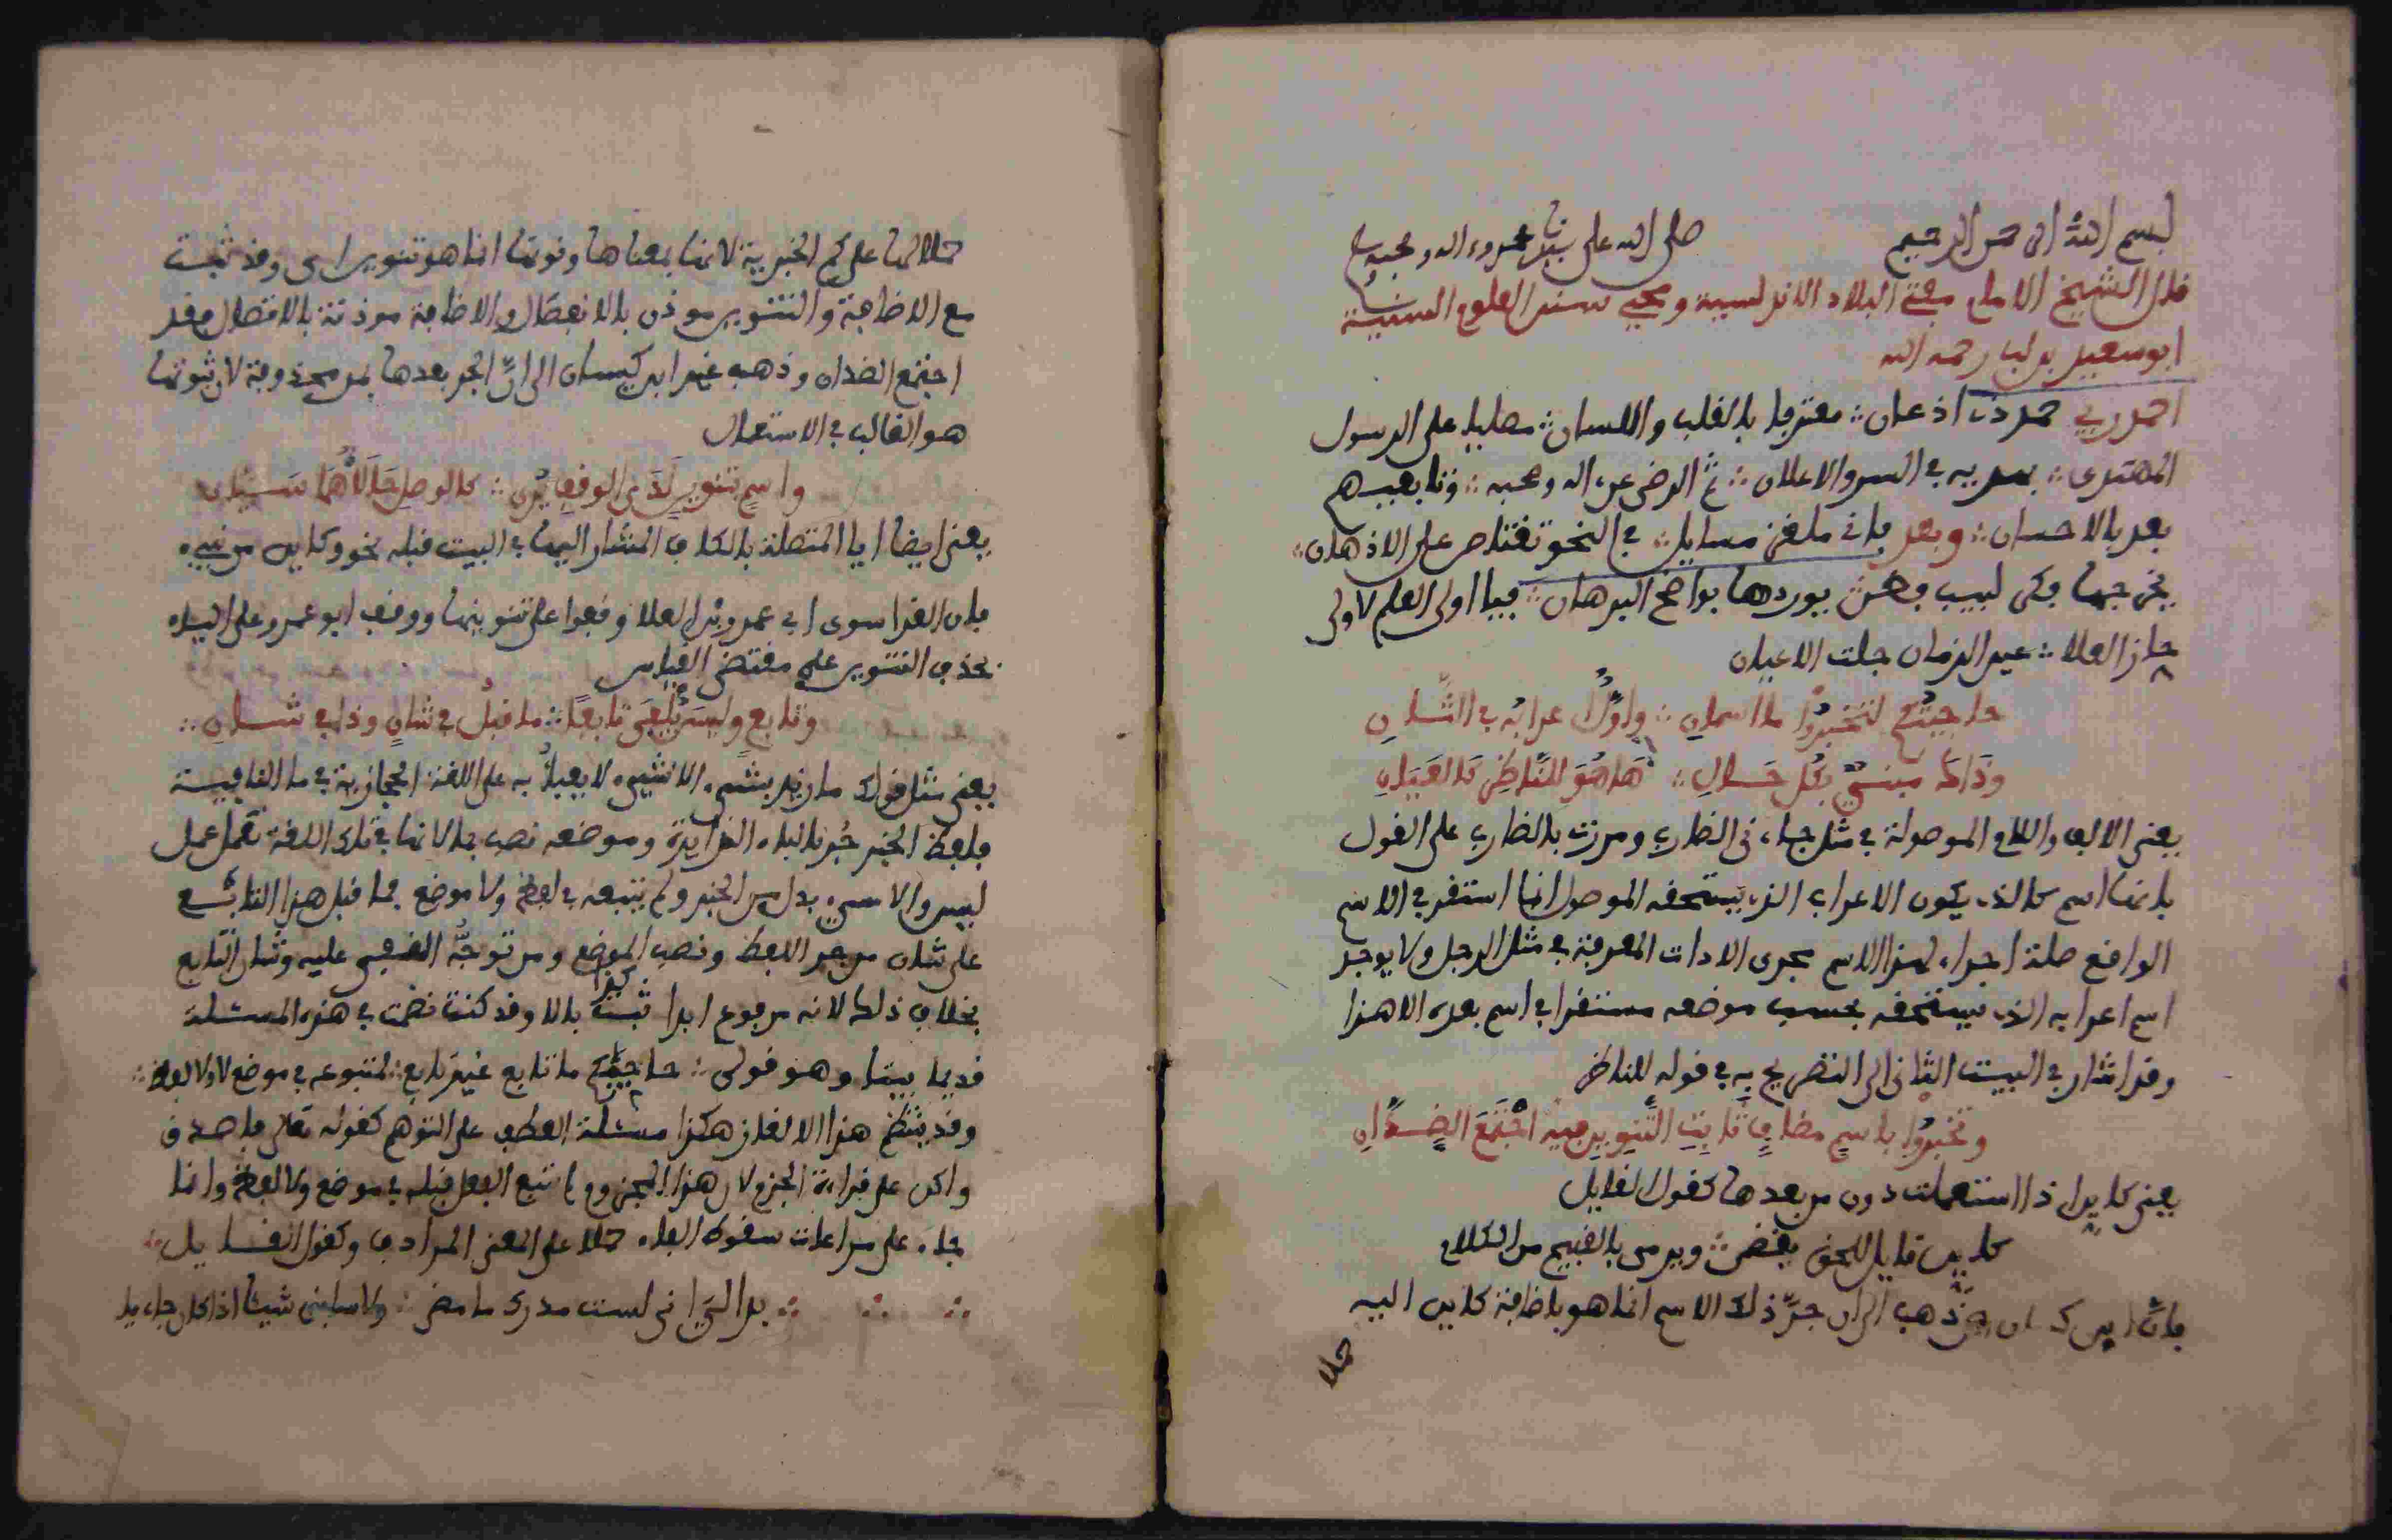 بسم الله الرحمن الرحيم صلى الله على سيدنا محمد وءاله وصحبه
قال الشيخ الامام مفتي البلاد الاندلسية ومحيي سنن العلوم السنية
ابو سعيد بن لب رحمه الله
احمد ربي حمد ذي اذعان ؞ معترفا بالقلب واللسان ؞ مصليا على الرسول
المهتدى ؞ بهديه في السر والاعلان ؞ ثم الرضى عن اله وصحبه ؞ وتابعيهم
بعد بالاحسان ؞ وبعد فاني ملغز مسايل ؞ في النحو تعتاص على الاذهان ؞
يخرجها فكر لبيب فطن ؞ يوردها بواضح البرهان ؞ فيا اولى العلم الاولى
حازوا العلا ؞ عيد الزمان جلت الاعيان
حاجيتكم لتخبروا ما اسمان ؞ واول اعرابه في الثان
وذاك مبني بكل حال ؞ ها هو للناظر كالعيان
يعني الالف واللام الموصولة في مثل جاءني الضارب ومررت بالضارب على القول
بانها اسم كالذي يكون الاعراب الذي يستحقه الموصول انما استقر في الاسم
الواقع صلة اجراء لهذا الاسم مجرى الادات المعرفة في مثل الرجل ولا يوجد
اسم اعرابه الذي يستحقه بحسب موضعه مستقرا في اسم بعده الا هذا
وقد اشار في البيت الثاني الى التصريح به في قوله للناظر
وتخبروا باسم مضاف ثابت التنوين فيه اجتمع الضدان
يعني كاين اذا استعملت دون من بعدها كقول القايل
كاين قايل للحق يقضى ؞ ويرمى بالقبيح من الكلام
فان ابن كيسان ذهب الى ان جر ذلك الاسم انما هو باضافة كاين اليه
حملا
حملا لها على كم الخبرية لانها بمعناها ونونها انما هو تنوين اي وقد ثبت
مع الاضافة والتنوين موذن بالانفصال والاضافة موذنة بالاتصال فقد
اجتمع الضدان وذهب غير ابن كيسان الى ان الجر بعدها بمن محذوفة لان ثبوتها
هو الغالب في الاستعمال
واسم بتنوين لدى الوقف يرى ؞ كالوصل حالاهما سيان
يعني ايضا ايا المتصلة بالكاف المشار اليها في البيت قبله نحو وكاين من نبيء
فان القرا سوى ابي عمرو بن العلا وقفوا على تنوينها ووقف ابو عمرو على الياء
بحذف التنوين على مقتضى القياس
وتابع وليس يلفى تابعا ؞ ما قبل في شان وذا في شان ؞
يعني مثل قولك ما زيد بشيء الا شيء لا يعبأ به على اللغة الحجازية في ما النافية
فلفظ الخبر جر بالباء الزايدة وموضعه نصب بما لانها في تلك اللغة تعمل عمل
ليس والا شيء بدل من الخبر ولم يتبعه في لفظ ولا موضع فما قبل هذا التابع
على شان من جر اللفظ ونصب الموضع ومن توجه النفي عليه وشان التابع
بخلاف ذلك لانه مرفوع ابدا ثبت بالا وقد كنت نظمت في هذه المسئلة
قديما بيتا وهو قولي ؞ حاجيتكم ما تابع غير تابع ؞ لمتبوعه في موضع لا ولا لفظ ؞
وقد ينتظم هذا الالغاز هكذا مسئلة العطف على التوهم كقوله تعالى فاصدق
واكن على قراءة الجزم لان هذا المجزوم لم يتبع الفعل قبله في موضع ولا لفظ وانما
جاء على مراعات سقوط الفاء حملا على المعنى المرادف وكقول القايل ؞
؞ ؞ ؞ بدا لي اني لست مدرك ما مضى ؞ ولا سابق شيئا اذا كان جاءيا